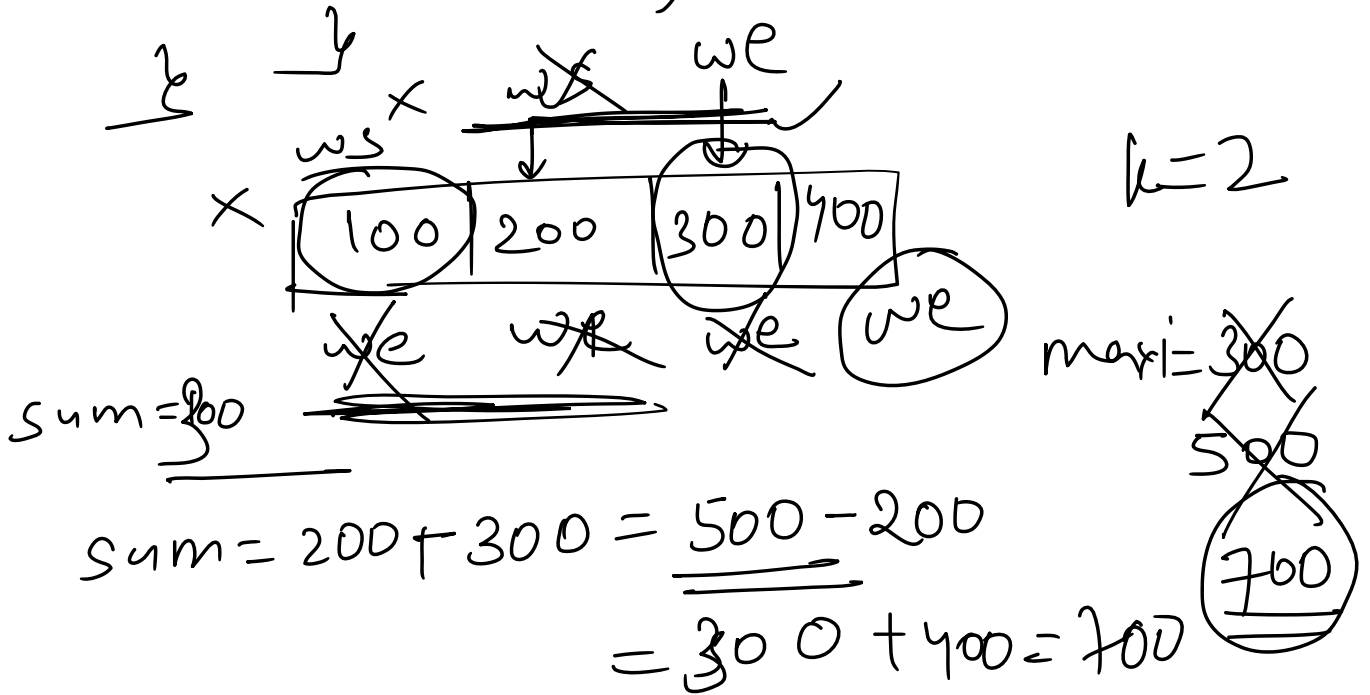 we
ws
ws
k=2
100 200 300 400
we we we we
maxi=300
sum=300
500
sum = 200+300 = 500-200
700
= 300 +400=700